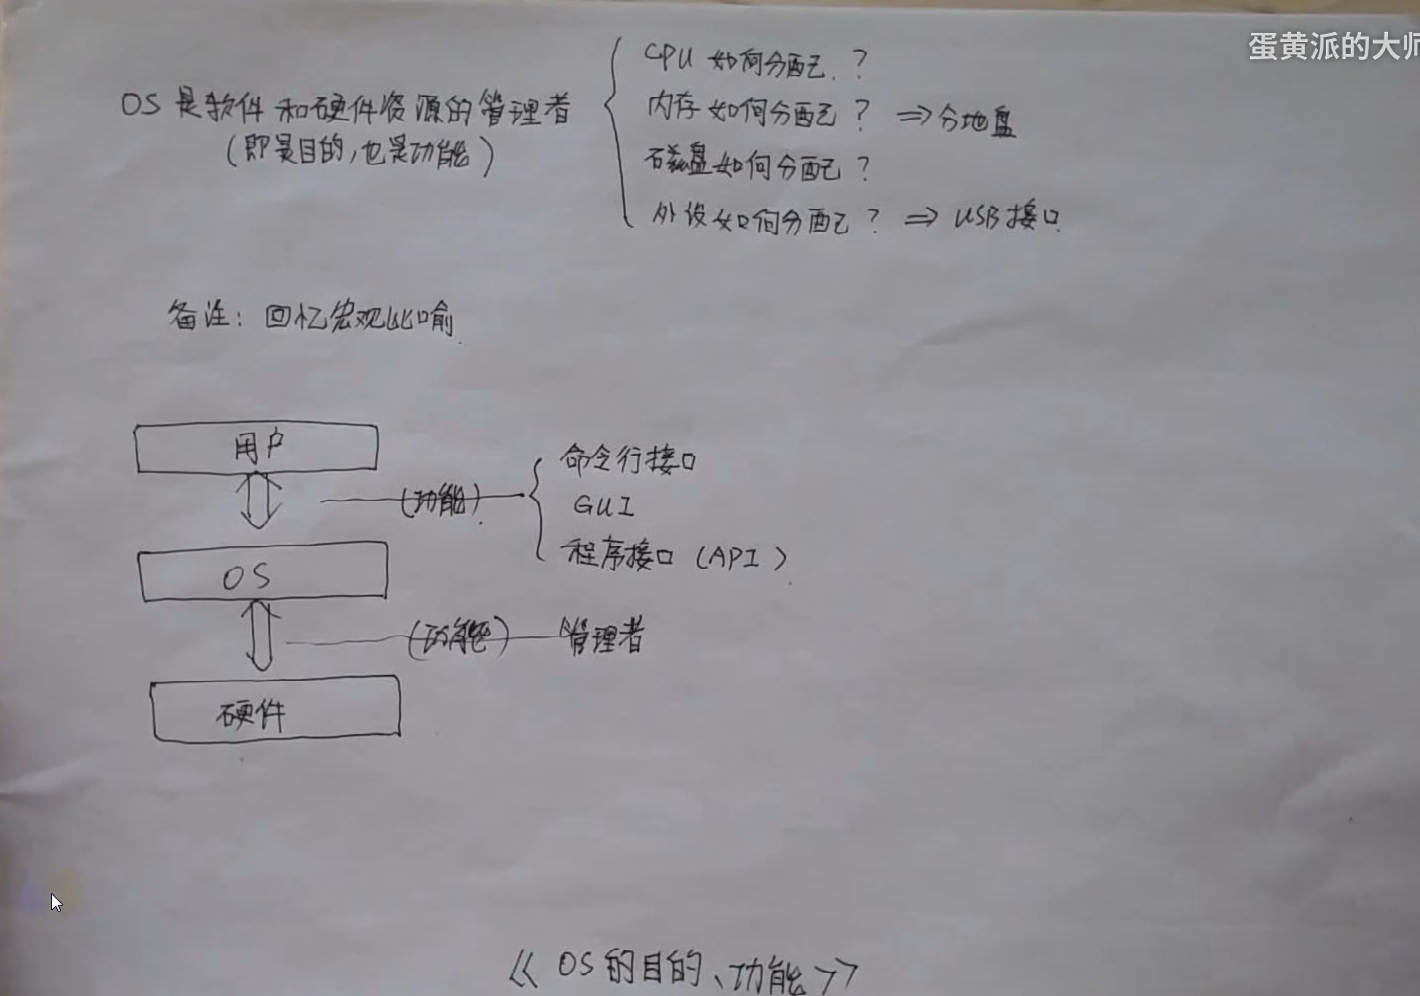 蛋黄派的大师
OS是软件和硬件资源的管理者
(即是目的,也是功能)
CPU 如何分配?
内存如何分配? ⇒分地盘
磁盘如何分配?
外设如何分配? ⇒ USB接口
备注: 回忆宏观比喻
用户
(功能)
命令行接口
GUI
程序接口 (API)
OS
(功能)
管理者
硬件
《OS的目的、功能》